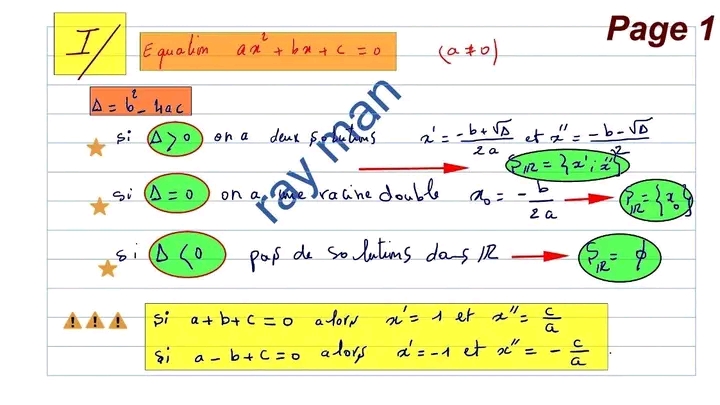 Page 1
I/ Equation ax² + bx + c = 0 (a ≠ 0)
Δ = b² - 4ac
si Δ > 0 on a deux solutions x' = (-b + √Δ)/2a et x'' = (-b - √Δ)/2
S_IR = {x' ; x''}
si Δ = 0 on a une racine double x₀ = - b/2a → S_IR = {x₀}
si Δ < 0 pas de solutions dans IR → S_IR = ϕ
si a + b + c = 0 alors x' = 1 et x'' = c/a
si a - b + c = 0 alors x' = -1 et x'' = - c/a .
ray man